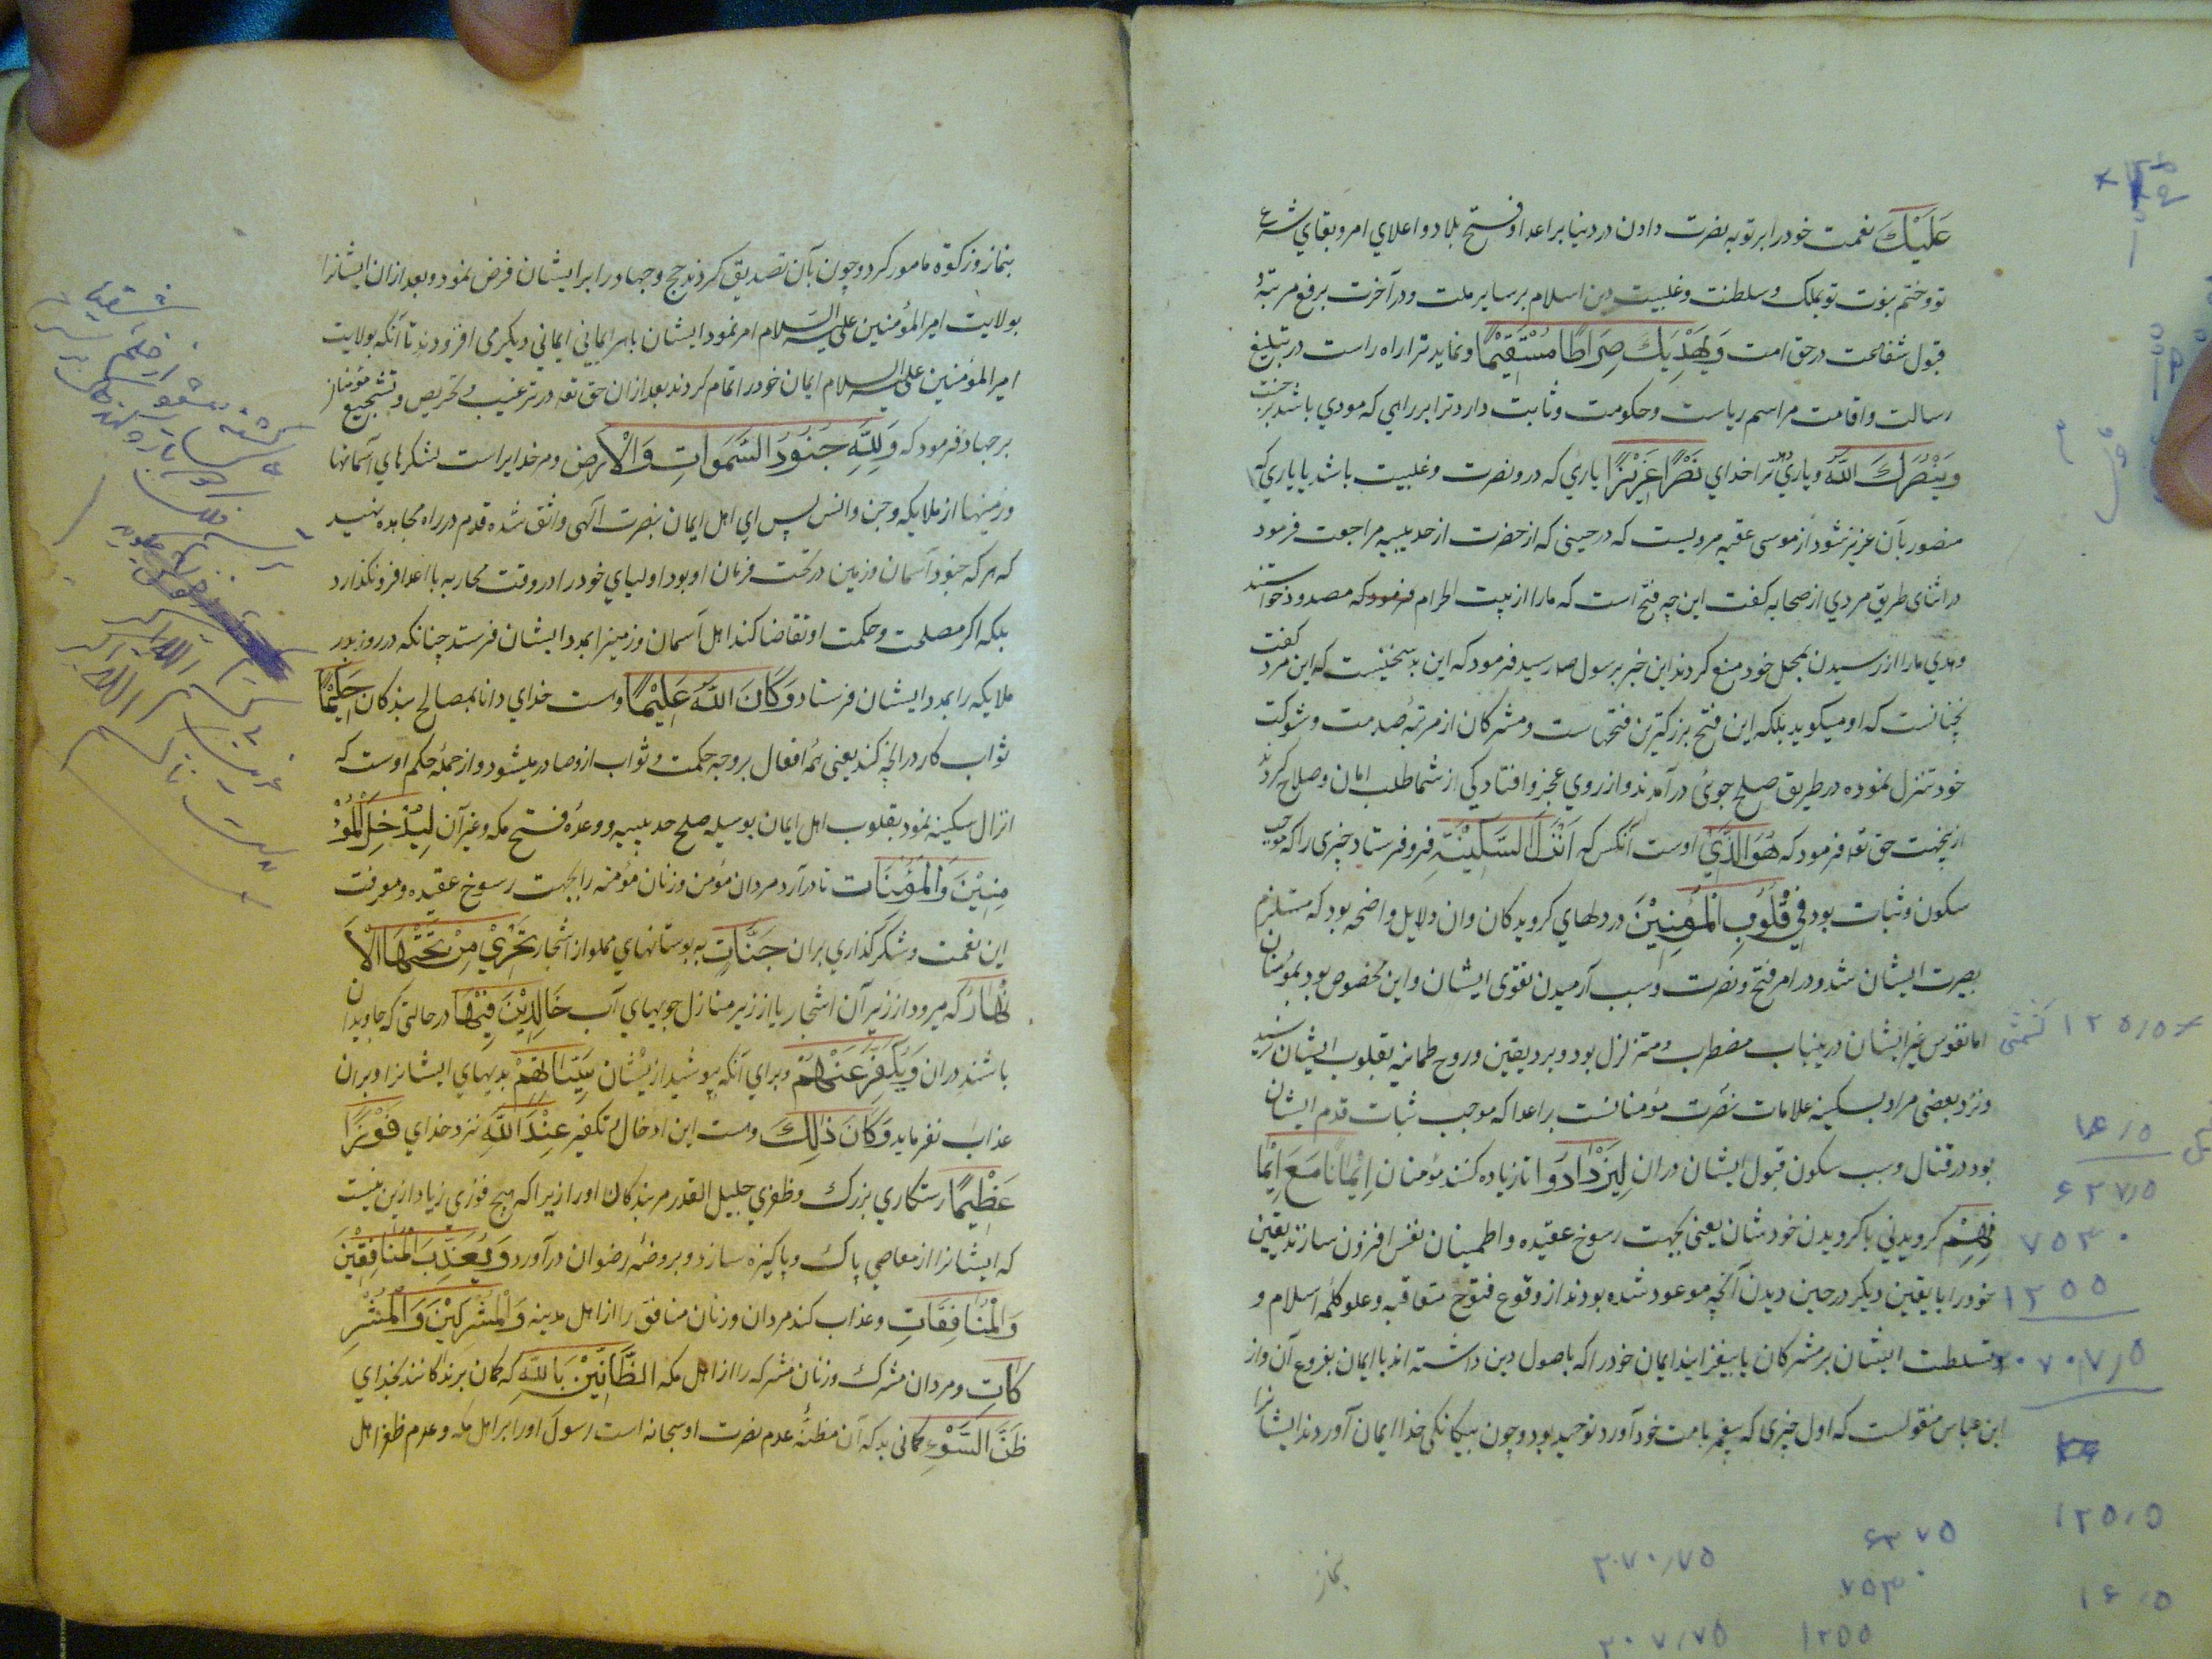 عَلَیْكَ نعمت خود را بر تو به نصرت دادن در دنیا بر اعدا و فتح بلاد و اعلای امر و بقای شرع
تو و ختم نبوت تو بملک و سلطنت و غلبیت دین اسلام بر سایر ملت و در آخرت برفع مرتبهٔ
قبول شفاعت در حق امت وَیَهْدِیَكَ صِرَاطًا مُسْتَقِیْمًا و نماید ترا راه راست در تبلیغ
رسالت و اقامت مراسم ریاست و حکومت و ثابت دارد ترا بر راهی که مودی باشد بر جنت
وَیَنْصُرَكَ اللهُ و یاری دهد ترا خدای نَصْرًا عَزِیْزًا یاری که درو نصرت و غلبیت باشد یا یاری که
منصور بآن عزیز شود از موسی عقبه مرویست که در حینی که از حضرت از حدیبیه مراجعت فرمود
در اثنای طریق مردی از صحابه کفت این چه فتح است که ما را از بیت الحرام فرمود که مصدود خواستند
و هدی ما را از رسیدن بمحل خود منع کردند این خبر برسول صلم رسید فرمود که این بد سخنیست که این مرد کفت
نچنانست که او میکوید بلکه این فتح بزرکترین فتحهاست و مشرکان از مرتبهٔ صدمت و شوکت
خود تنزل نموده در طریق صلح جوئی در آمدند و از روی عجز و افتادکی از شما طلب امان و صلاح کردند
ازینجهت حق تعه فرمود که هُوَ الَّذِیْ اوست آنکس که اَنْزَلَ السَّکِیْنَةَ فرو فرستاد چیزی را که موجب
سکون و ثبات بود فِیْ قُلُوبِ الْمُؤْمِنِیْنَ در دلهای کرویدکان وان دلایل واضحه بود که مستلزم
بصیرت ایشان شد و در امر فتح و نصرت و سبب آرمیدن تقوی ایشان و این مخصوص بود بمؤمنان
اما نفوس غیر ایشان درینباب مضطرب و متزلزل بود و برد یقین و روح طمانینه بقلوب ایشان نرسید
و نزد بعضی مراد بسکینه علامات نصرت مؤمنانست بر اعدا که موجب ثبات قدم ایشان
بود در قتال و سبب سکون قبول ایشان دران لِیَزْدَادُوا تا زیاده کنند مؤمنان اِیْمَانًا مَعَ اِیْمَا
نِهِمْ کرویدنی با کرویدن خودشان یعنی بجهت رسوخ عقیده و اطمینان نفس افزون سازند یقین
خود را با یقین دیکر در حین دیدن آنچه موعود شده بودند از وقوع فتوح متعاقبه و علو کلمهٔ اسلام و
تسلطت ایشان بر مشرکان یا بیفزایند ایمان خود را که باصول دین داشته اند با ایمان بفروع آن و از
ابن عباس منقولست که اول چیزی که پیغمبر بامت خود آورد توحید بود و چون بیکانکی خدا ایمان آوردند ایشانرا
بنماز
۱۲۵٫۵
۶۲۷٫۵
۷۵۳۰
۱۲۵۵
۲۰۷۰۷٫۵
۱۲۵٫۵
۱۶٫۵
۶۲۷۵
۷۵۳۰
۱۲۵۵
۲۰۷۰٫۷۵
۲۰۷٫۷۵
بنماز و زکوة مامور کرد و چون بآن تصدیق کردند حج و جهاد را بر ایشان فرض نمود و بعد ازان ایشانرا
بولایت امیر المؤمنین علیه السلام امر نمود ایشان باهر ایمانی ایمانی دیکری افزودند تا آنکه بولایت
امیر المؤمنین علیه السلام ایمان خود را تمام کردند بعد ازان حق تعه در ترغیب و تحریص و تشجیع مؤمنان
بر جهاد فرمود که وَلِلّٰهِ جُنُودُ السَّمَوَاتِ وَالْاَرْضِ و مر خدایراست لشکرهای آسمانها
و زمینها از ملایکه و جن و انس پس ای اهل ایمان بنصرت الهی واثق شده قدم در راه مجاهده نهید
که هر که جنود آسمان و زمین در تحت فرمان او بود اولیای خود را در وقت محاربه با اعدا فرو نکذارد
بلکه اکر مصلحت و حکمت او تقاضا کند اهل آسمان و زمینرا بمدد ایشان فرستد چنانکه در روز بدر
ملایکه را بمدد ایشان فرستاد وَکَانَ اللهُ عَلِیْمًا و هست خدای دانا بمصالح بندکان حَکِیْمًا
ثواب کار در آنچه کند یعنی همهٔ افعال بر وجه حکمت و ثواب ازو صادر میشود و از جملهٔ حکم اوست که
انزال سکینه نمود بقلوب اهل ایمان بوسیله صلح حدیبیه و وعدهٔ فتح مکه و غیر آن لِیُدْخِلَ الْمُؤْ
مِنِیْنَ وَالْمُؤْمِنَاتِ تا درآرد مردان مؤمن و زنان مؤمنه را بجهت رسوخ عقیده و معرفت
این نعمت و شکر کذاری بران جَنَّاتٍ به بوستانهای مملو از اشجار تَجْرِیْ مِنْ تَحْتِهَا الْاَ
نْهَارُ که میرود از زیر آن اشجار یا از زیر منازل جویهای آب خَالِدِیْنَ فِیْهَا در حالتی که جاویدان
باشند دران وَیُکَفِّرَ عَنْهُمْ و برای آنکه بپوشید ازیشان سَیِّئَاتِهِمْ بدیهای ایشانرا و بران
عذاب نفرماید وَکَانَ ذٰلِكَ و هست این ادخال و تکفیر عِنْدَ اللهِ نزد خدای فَوْزًا
عَظِیْمًا رستکاری بزرک و ظفری جلیل القدر مر بندکان او را زیرا که هیچ فوزی زیاد ازین نیست
که ایشانرا از معاصی پاک و پاکیزه سازد و بروضه رضوان درآورد وَیُعَذِّبَ الْمُنَافِقِیْنَ
وَالْمُنَافِقَاتِ و عذاب کند مردان و زنان منافق را از اهل مدینه وَالْمُشْرِکِیْنَ وَالْمُشْرِ
کَاتِ و مردان مشرک و زنان مشرکه را از اهل مکه الظَّانِّیْنَ بِاللهِ که کمان برندکانند بخدای
ظَنَّ السَّوْءِ کمانی بد که آن مظنهٔ عدم نصرت او سبحانه است رسول او را بر اهل مکه و عدم ظفر اهل